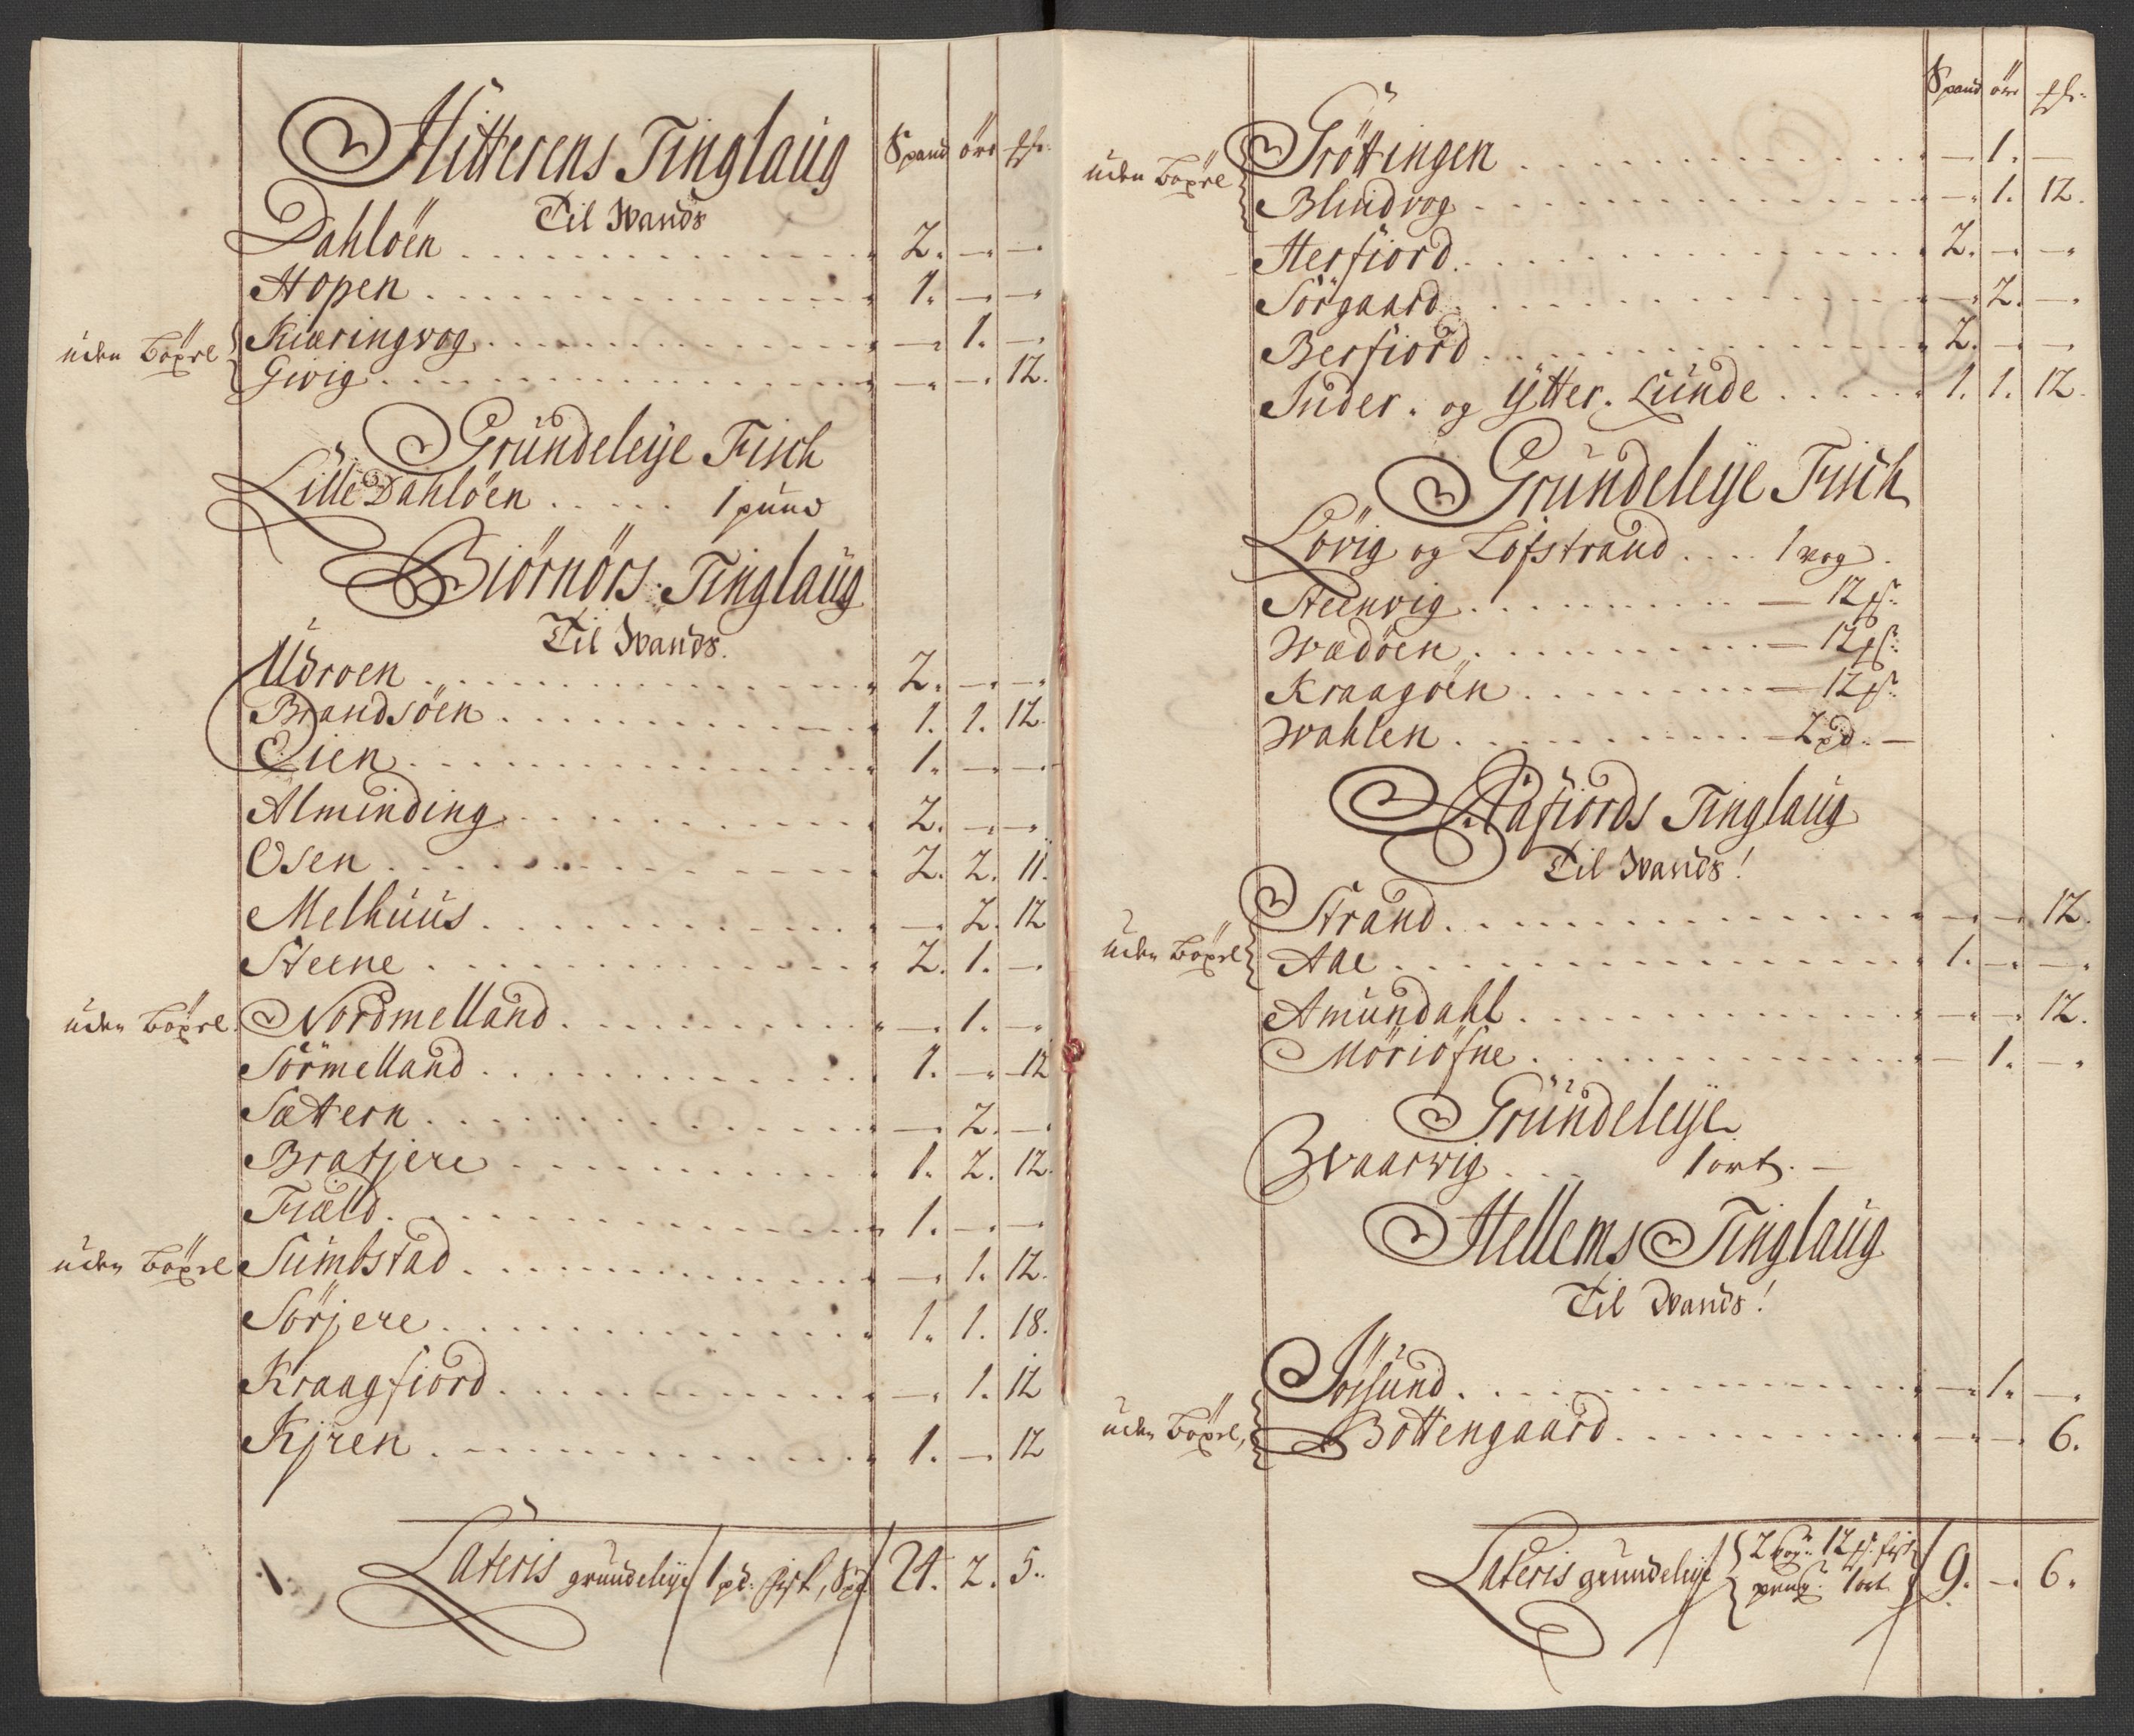 Hitterens Tinglaug Spand öre
Til Wands
Dahlöen 2. — —
Hopen 1. — —
uden Böxel Kiæringvog — 1. —
Givig — — 12.
Grundeleÿe Fisch
Lille Dahlöen 1 pund
Biörnörs Tinglaug
Til Wands.
Udroen 2. — —
Brandsöen 1. 1. 12.
Eien 1. — —
Alminding 2. — —
Osen 2. 2. 11.
Melhuus — 2. 12
Steene 2. 1. —
uden Böxel Nordmelland — 1. —
Sörmelland 1. — 12
Sætern — 2. —
Bratjere 1. 2. 12.
Fiæld 1. — —
uden Böxel Sumbstad — 1. 12.
Sörjere 1. 1. 18.
Kraagfiord — 1. 12
Kjren 1. — 12
Lateris grundeleÿe 1 pd. fisk, 24. 2. 5.
Spand öre
uden Böxel Gröttingen — 1. —
Blindvog — 1. 12.
Herfiord 2. — —
Sörgaard — 2. —
Berfiord 2. — —
Inder. og Ÿtter. Lunde 1. 1. 12.
Grundeleÿe Fisch
Lövig og Löfstrand 1 vog.
Steenvig — 12
Wædöen — 12
Kraagöen — 12
Wahlen — 2 pd. —
Aafiords Tinglaug
Til Wands!
Strand — — 12.
uden Böxel Aae 1. — —
Amundahl — — 12.
Möriöfne — 1. —
Grundeleÿe
Qvaarvig 1 ort. —
Hellems Tinglaug
Til Wands!
Jösund — 1. —
uden Böxel, Bottengaard — — 6.
Lateris grundeleÿe 2 12 9. — 6.
1 ort